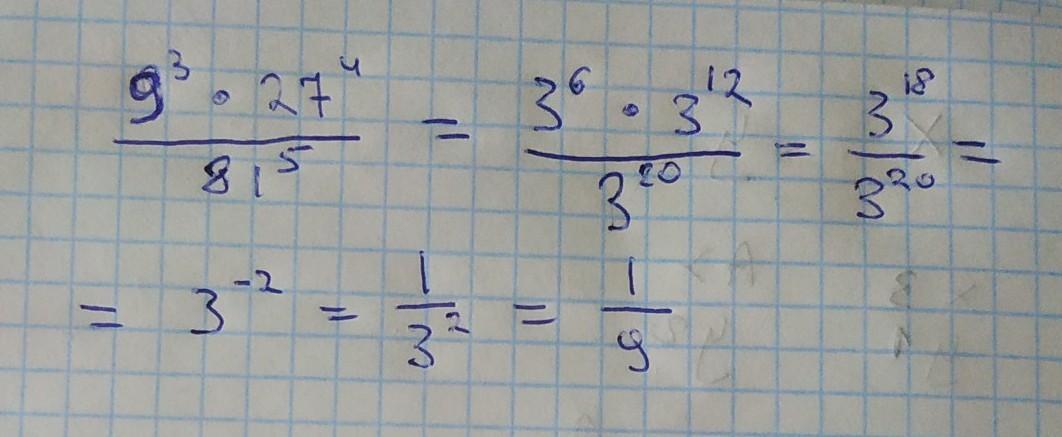 9³ · 27⁴ / 81⁵ = 3⁶ · 3¹² / 3²⁰ = 3¹⁸ / 3²⁰ =
= 3⁻² = 1 / 3² = 1 / 9